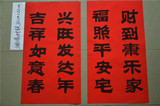 财到康乐家
福照平安宅
兴旺发达年
吉祥如意春